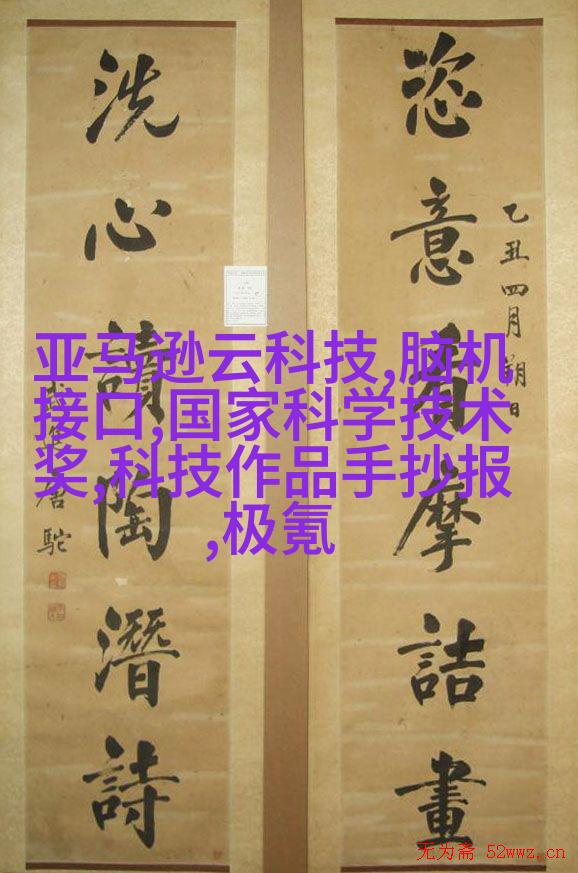 恣意看摩詰畫
乙丑四月朔日
洗心讀陶潛詩
武進唐駝
亚马逊云科技,脑机
接口,国家科学技术
奖,科技作品手抄报
,极氪
无为斋 52wwz.cn